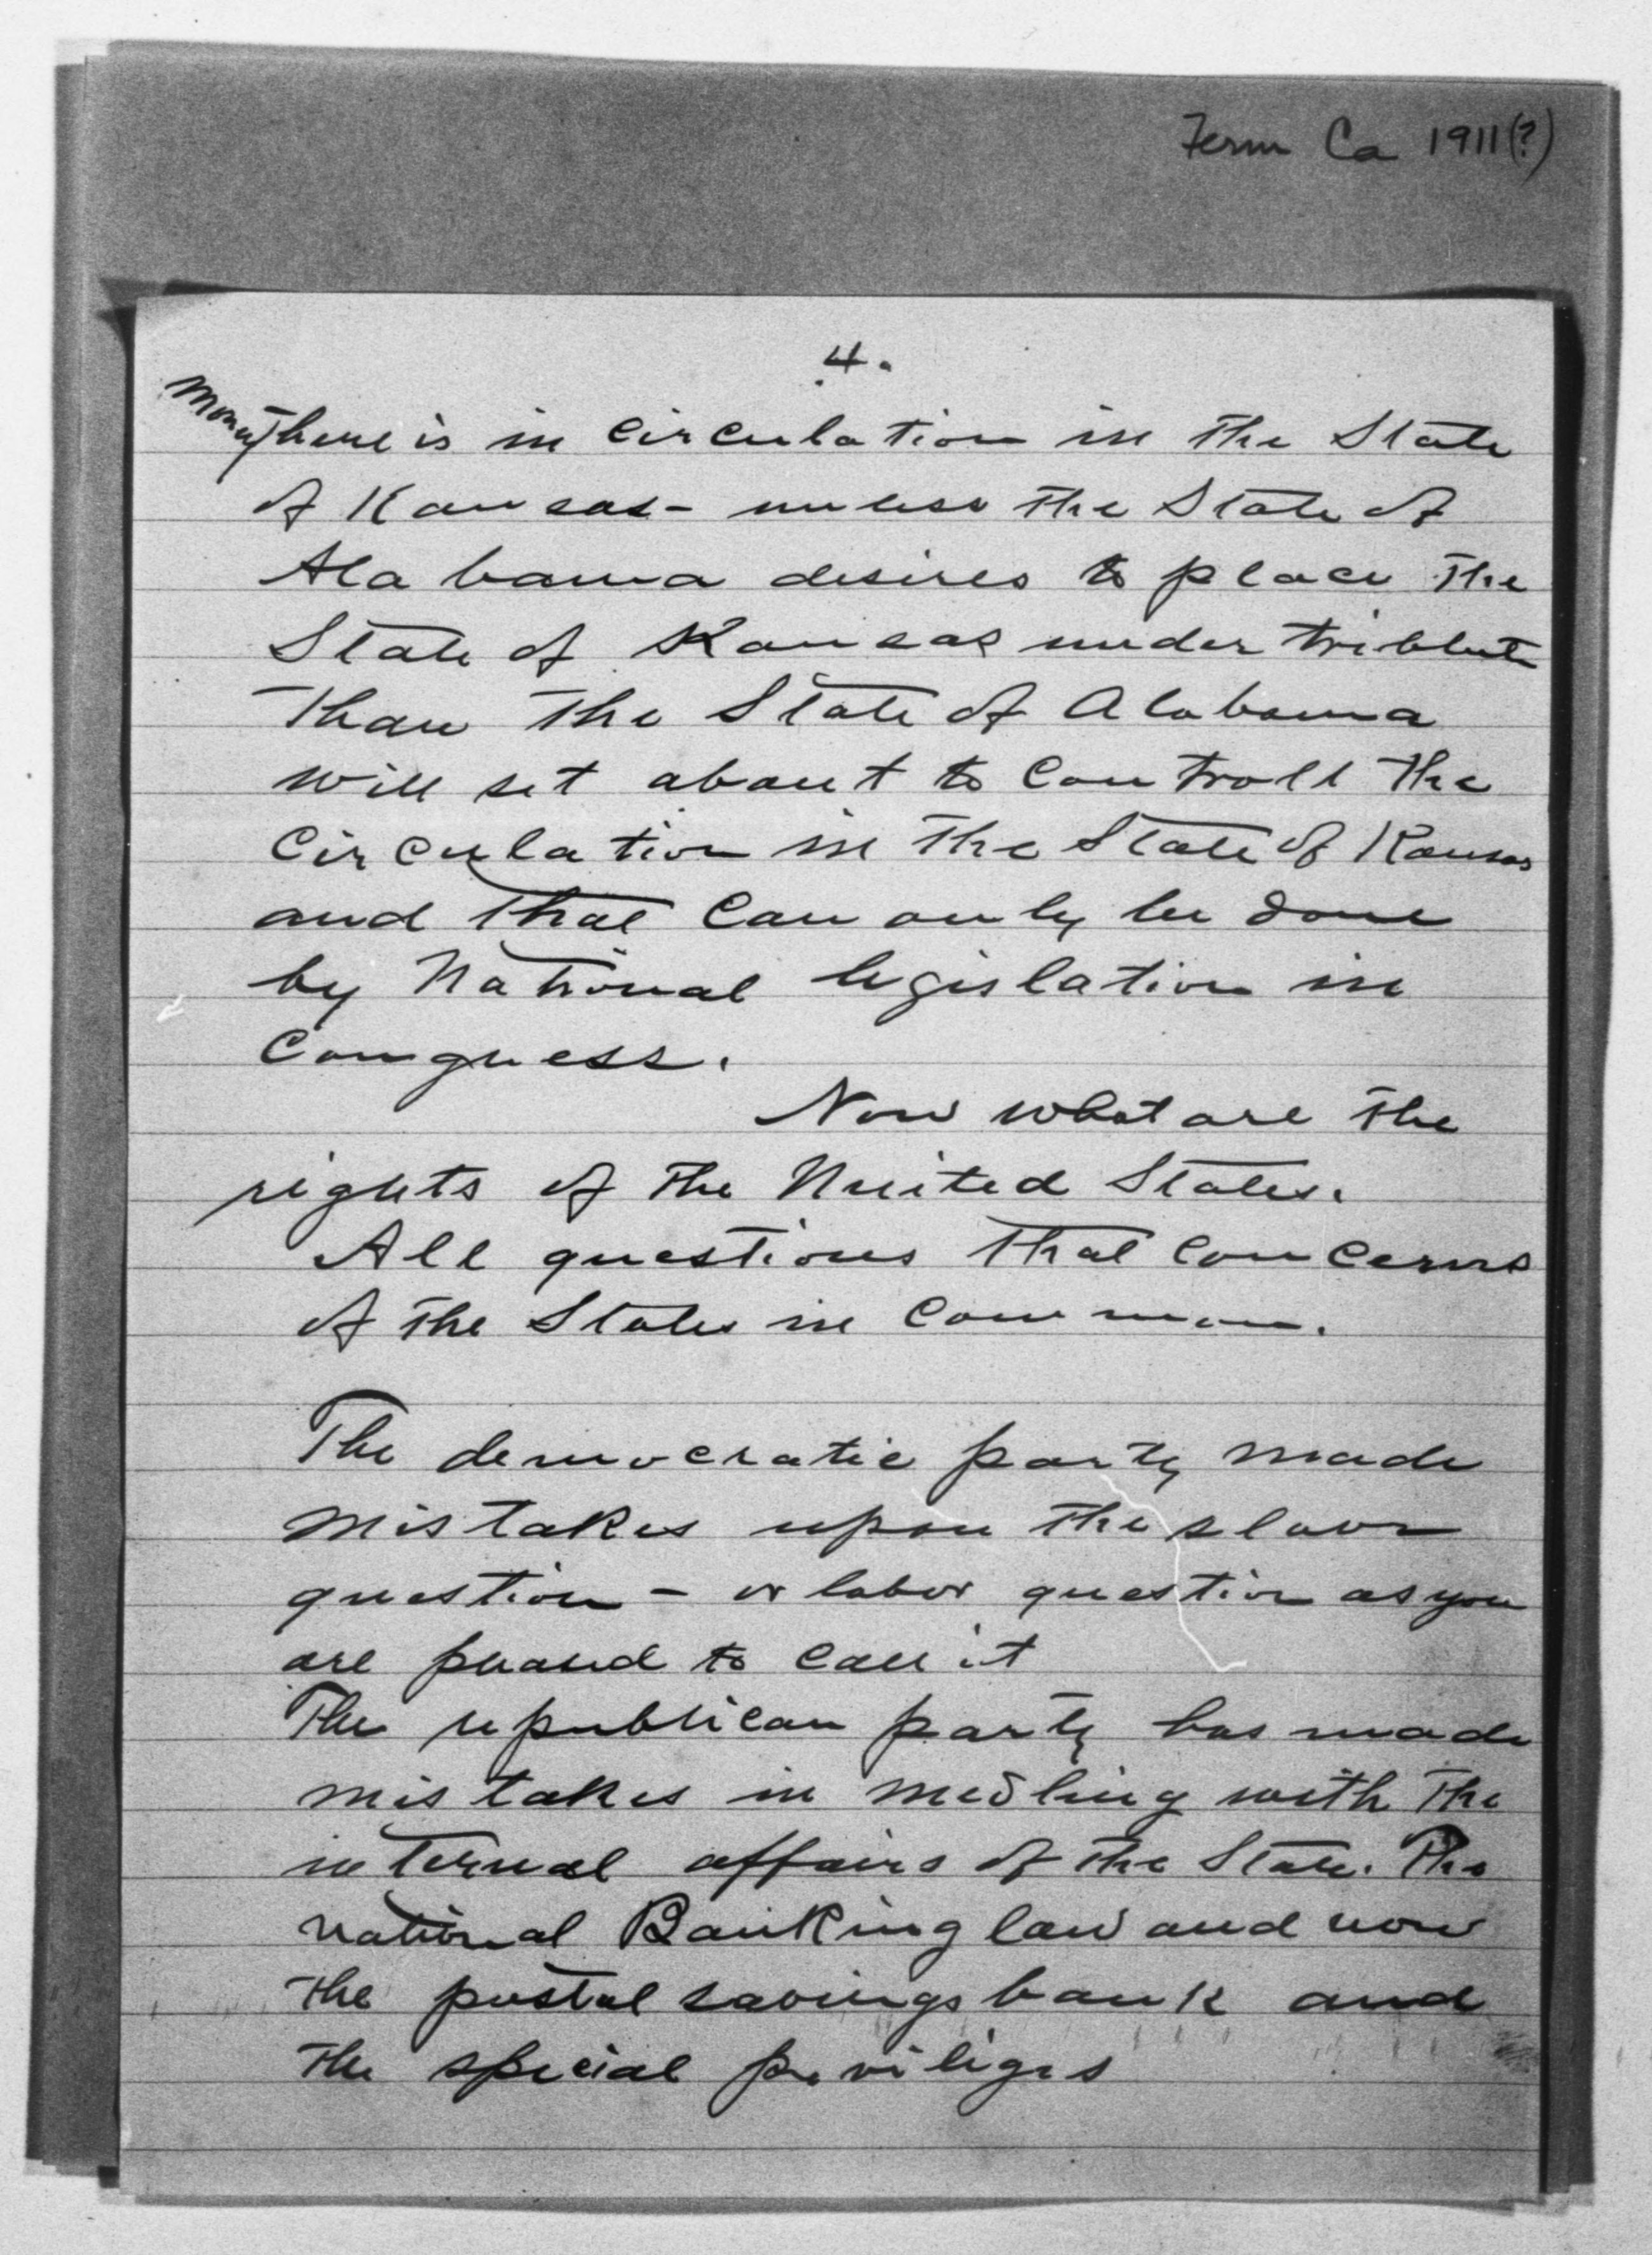 Term Ca 1911(?)
4.
money there is in circulation in the State
of Kansas - unless the State of
Alabama desires to place the
State of Kansas under tribbute
than the State of Alabama
will set about to controll the
circulation in the State of Kansas
and that can only be done
by National legislation in
Congress.
Now what are the
rights of the United States.
All questions that concerns
of the States in common.
The democratic party made
mistakes upon the slave
question - or labor question as you
are pleased to call it
The republican party has made
mistakes in medling with the
internal affairs of the State. The
national Banking law and now
the postal savings bank and
the special priviliges